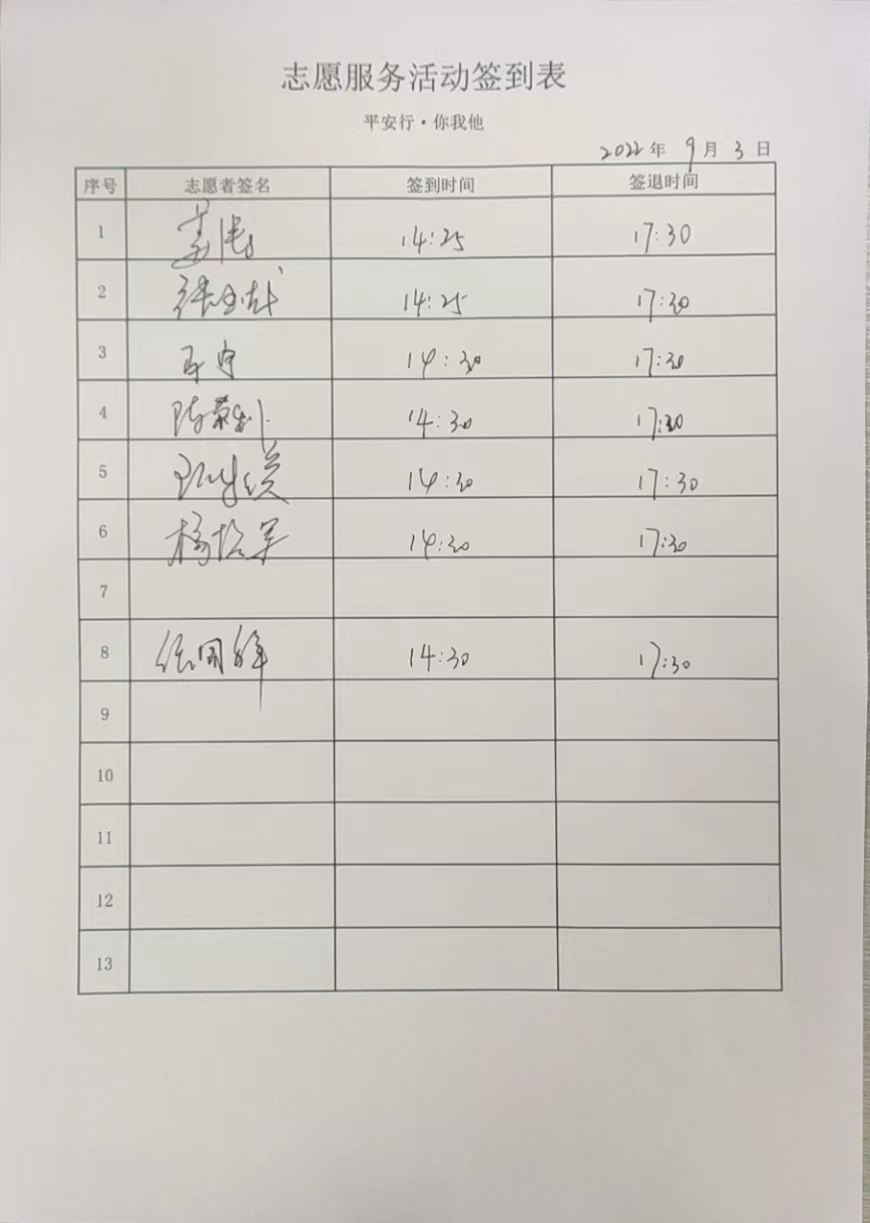 志愿服务活动签到表
平安行·你我他
2022年9月3日
序号 志愿者签名 签到时间 签退时间
1 14:25 17:30
2 14:25 17:30
3 14:30 17:30
4 14:30 17:30
5 14:30 17:30
6 14:30 17:30
7
8 14:30 17:30
9
10
11
12
13